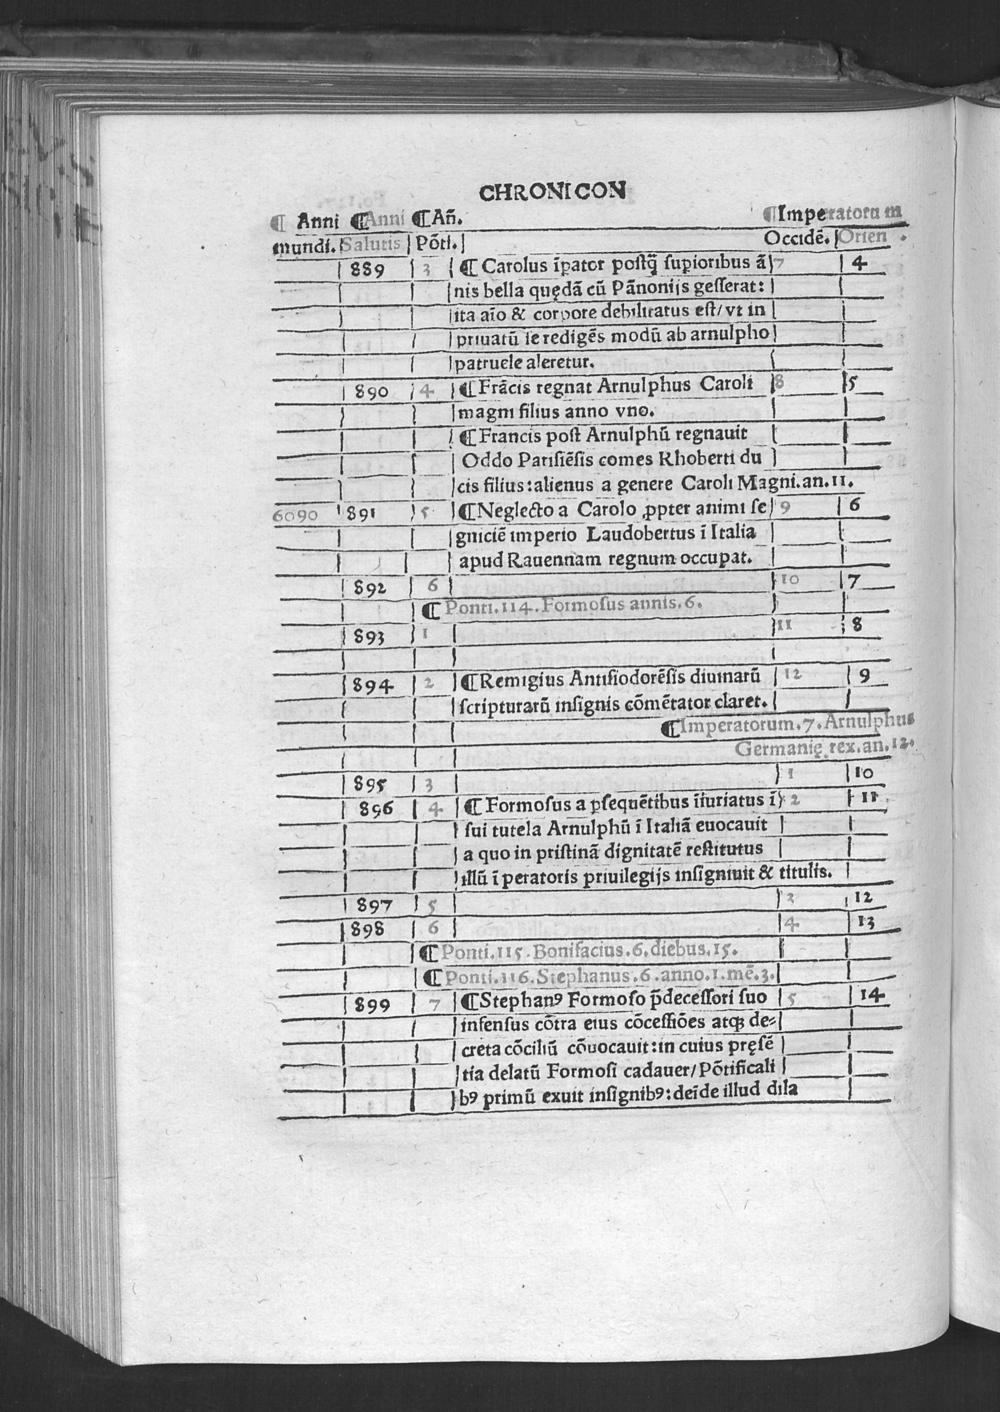 CHRONICON
¶ Anni ¶Anni ¶Añ. ¶Imperatorum
mundi. Salutis Põti. Occidẽ. Orien.
889 3 ¶ Carolus ĩpator postq̃ supioribus ã 7 4
nis bella quędã cũ Pãnonijs gesserat:
ita aĩo & corpore debilitatus est/vt in
priuatũ se redigẽs modũ ab arnulpho
patruele aleretur.
890 4 ¶ Frãcis regnat Arnulphus Caroli 8 5
magni filius anno vno.
¶ Francis post Arnulphũ regnauit
Oddo Parisiẽsis comes Rhoberti du
cis filius:alienus a genere Caroli Magni.an.11.
6090 891 5 ¶Neglecto a Carolo ꝓpter animi se 9 6
gniciẽ imperio Laudobertus ĩ Italia
apud Rauennam regnum occupat.
892 6 10 7
¶ Ponti.114.Formosus annis.6.
893 1 11 8
894 2 ¶Remigius Antisiodorẽsis diuinarũ 12 9
scripturarũ insignis cõmẽtator claret.
¶Imperatorum.7.Arnulphus
Germanię rex.an.12.
895 3 1 10
896 4 ¶ Formosus a ꝑsequẽtibus ĩiuriatus ĩ 2 11
sui tutela Arnulphũ ĩ Italiã euocauit
a quo in pristinã dignitatẽ restitutus
illũ ĩ peratoris priuilegijs insigniuit & titulis.
897 5 3 12
898 6 4 13
¶ Ponti.115.Bonifacius.6.diebus.15.
¶ Ponti.116.Stephanus.6.anno.1.mẽ.3.
899 7 ¶Stephanꝰ Formoso p̃decessori suo 5 14
infensus cõtra eius cõcessiões atqꝫ de⸗
creta cõciliũ cõuocauit:in cuius pręsẽ
tia delatũ Formosi cadauer/Põtificali
bꝰ primũ exuit insignibꝰ:deĩde illud dila